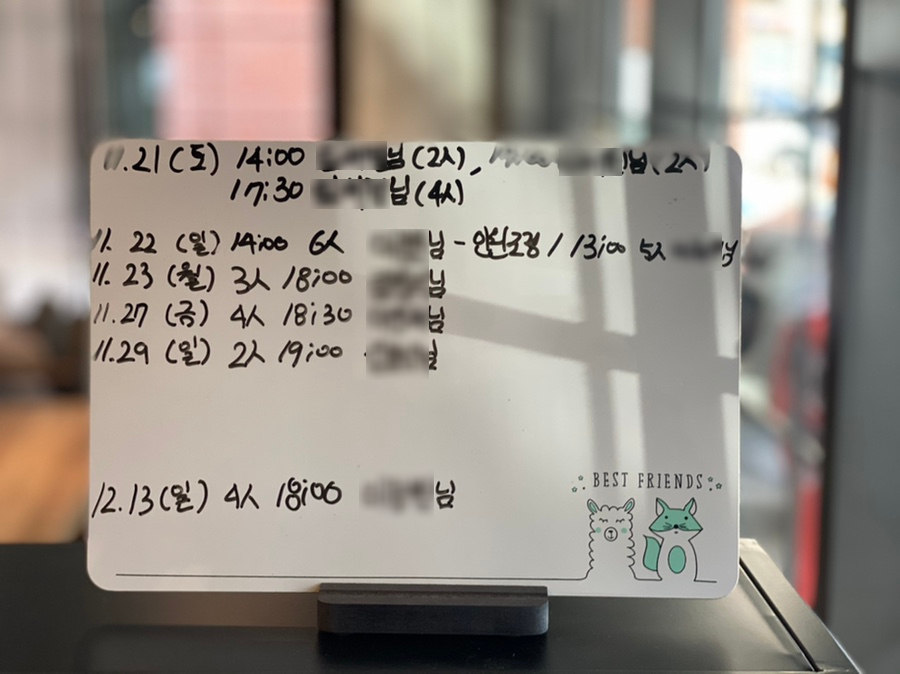 11.21(토) 14:00 님(2人), 님(2人)
17:30 님(4人)
11. 22 (일) 14:00 6人 님 - 인원조정 / 13:00 5人 님
11. 23 (월) 3人 18:00 님
11. 27 (금) 4人 18:30 님
11. 29 (일) 2人 19:00 님
12. 13 (일) 4人 18:00 님
BEST FRIENDS